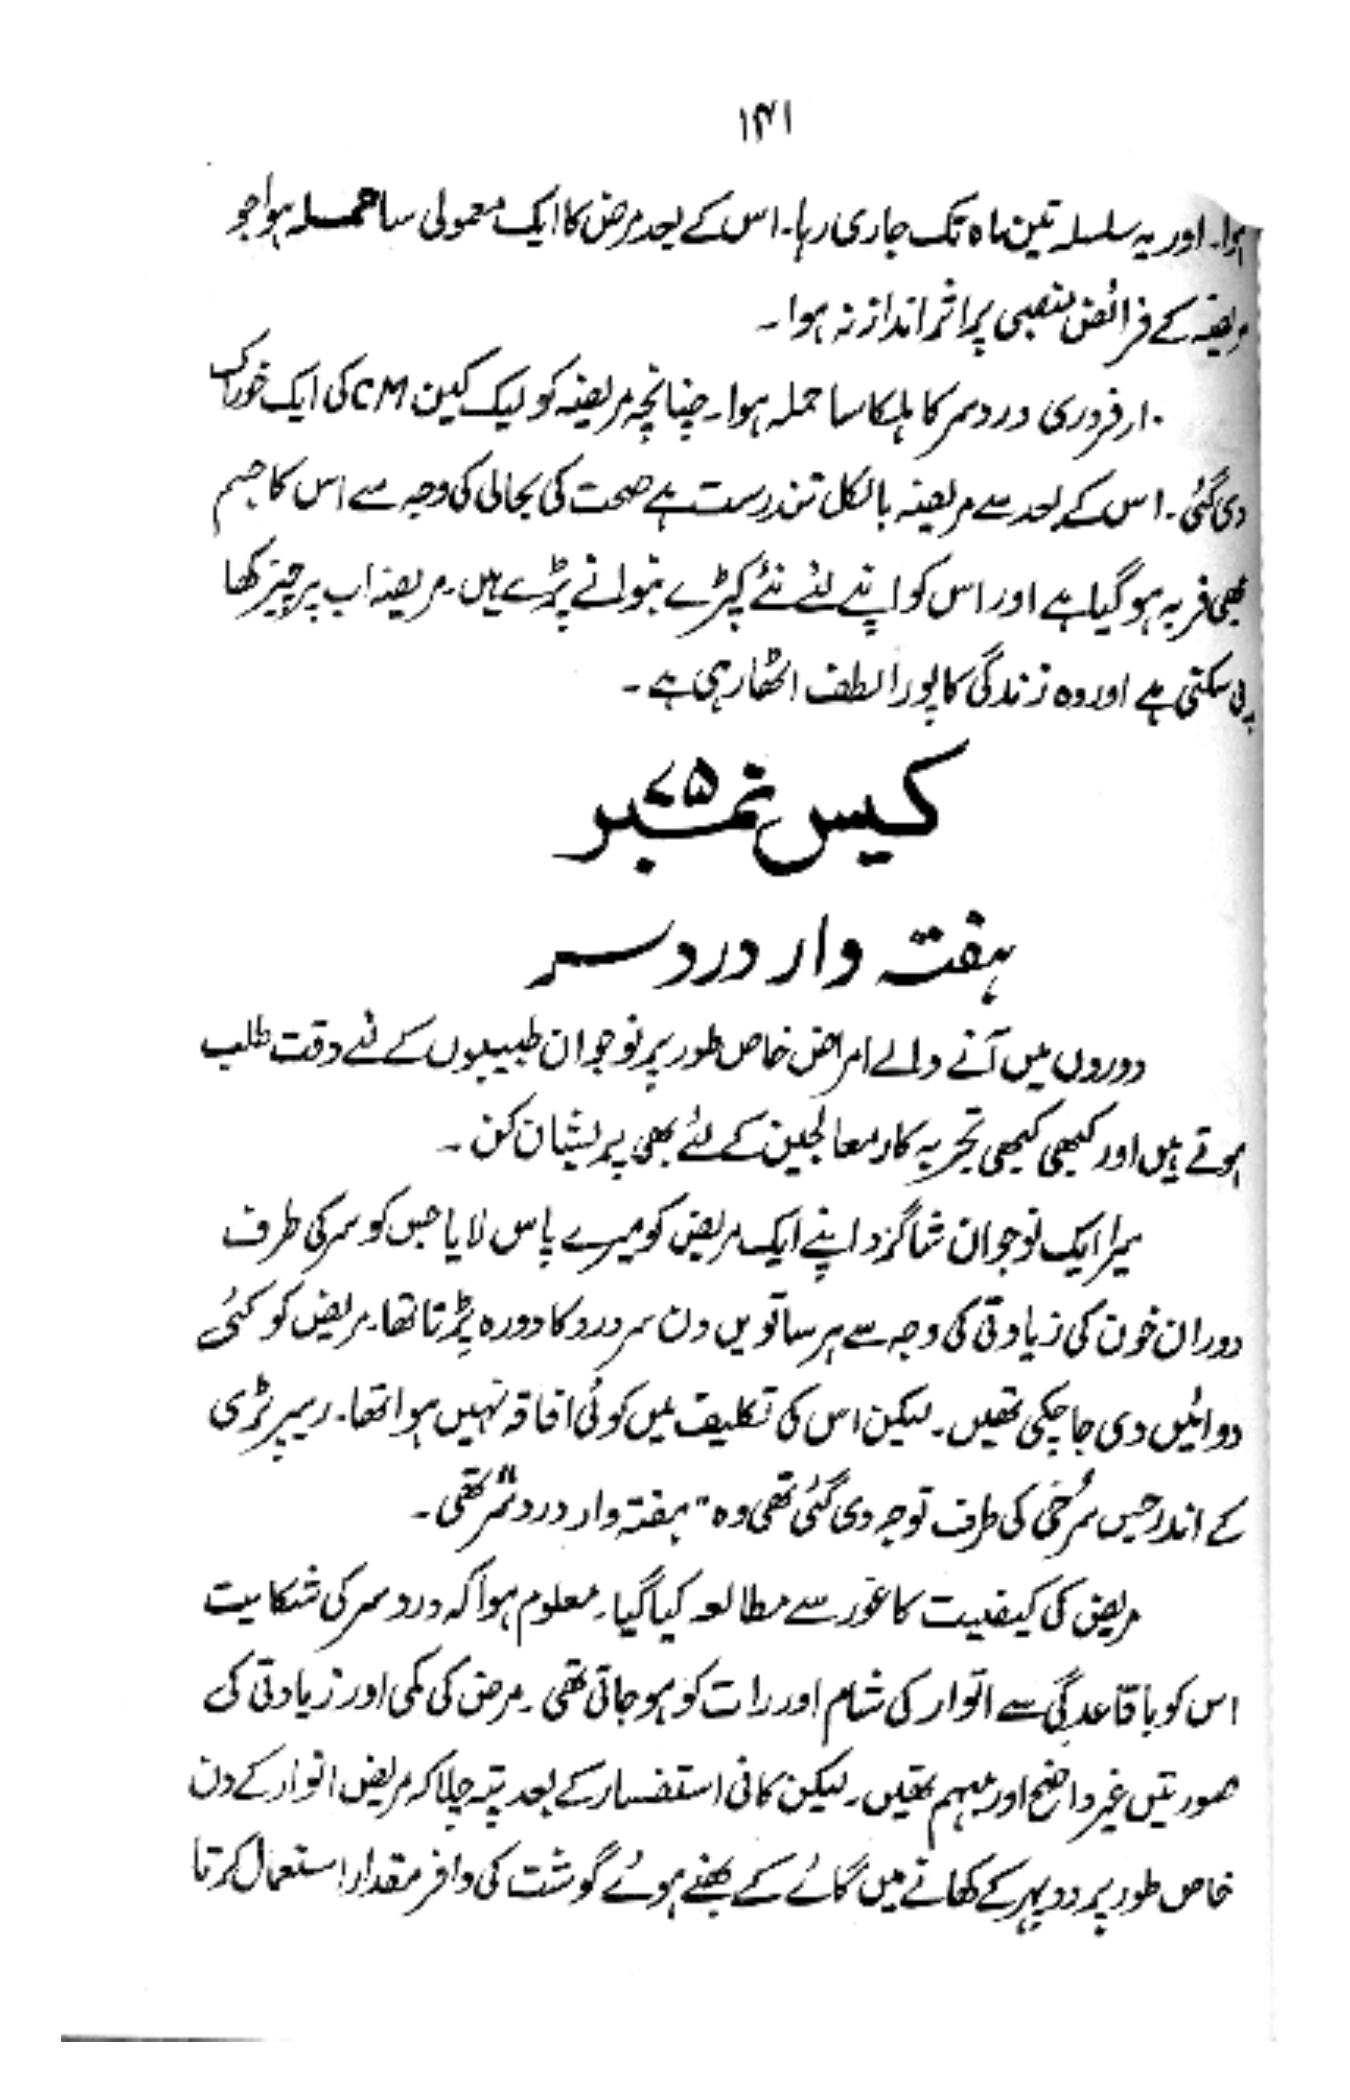 ۱۴۱
ہوا۔ اور یہ سلسلہ تین ماہ تک جاری رہا۔ اس کے بعد مرض کا ایک معمولی سا حملہ ہوا جو
مریضہ کے فرائض منصبی پر اثر انداز نہ ہوا۔
۱۰ر فروری درد سر کا ہلکا سا حملہ ہوا۔ چنانچہ مریضہ کو لیک کین CM کی ایک خوراک
دی گئی۔ اس کے بعد سے مریضہ بالکل تندرست ہے صحت کی بحالی کی وجہ سے اس کا جسم
بھی فربہ ہو گیا ہے اور اس کو اپنے لئے نئے کپڑے بنوانے پڑے ہیں۔ مریضہ اب ہر چیز کھا
پی سکتی ہے اور وہ زندگی کا پورا لطف اٹھا رہی ہے۔
کیس نمبر ۷۵
ہفتہ وار درد سر
دوروں میں آنے والے امراض خاص طور پر نوجوان طبیبوں کے لئے دقت طلب
ہوتے ہیں اور کبھی کبھی تجربہ کار معالجین کے لئے بھی پریشان کن۔
میرا ایک نوجوان شاگرد اپنے ایک مریض کو میرے پاس لایا جس کو سر کی طرف
دوران خون کی زیادتی کی وجہ سے ہر ساتویں دن سر درد کا دورہ پڑتا تھا۔ مریض کو کئی
دوائیں دی جا چکی تھیں۔ لیکن اس کی تکلیف میں کوئی افاقہ نہیں ہوا تھا۔ ریپرٹری
کے اندر جس سُرخی کی طرف توجہ دی گئی تھی وہ "ہفتہ وار درد سر" تھی۔
مریض کی کیفیت کا غور سے مطالعہ کیا گیا۔ معلوم ہوا کہ درد سر کی شکایت
اس کو باقاعدگی سے اتوار کی شام اور رات کو ہو جاتی تھی۔ مرض کی کمی اور زیادتی کی
صورتیں غیر واضح اور مبہم تھیں۔ لیکن کافی استفسار کے بعد پتہ چلا کہ مریض اتوار کے دن
خاص طور پر دوپہر کے کھانے میں گائے کے بھنے ہوئے گوشت کی وافر مقدار استعمال کرتا